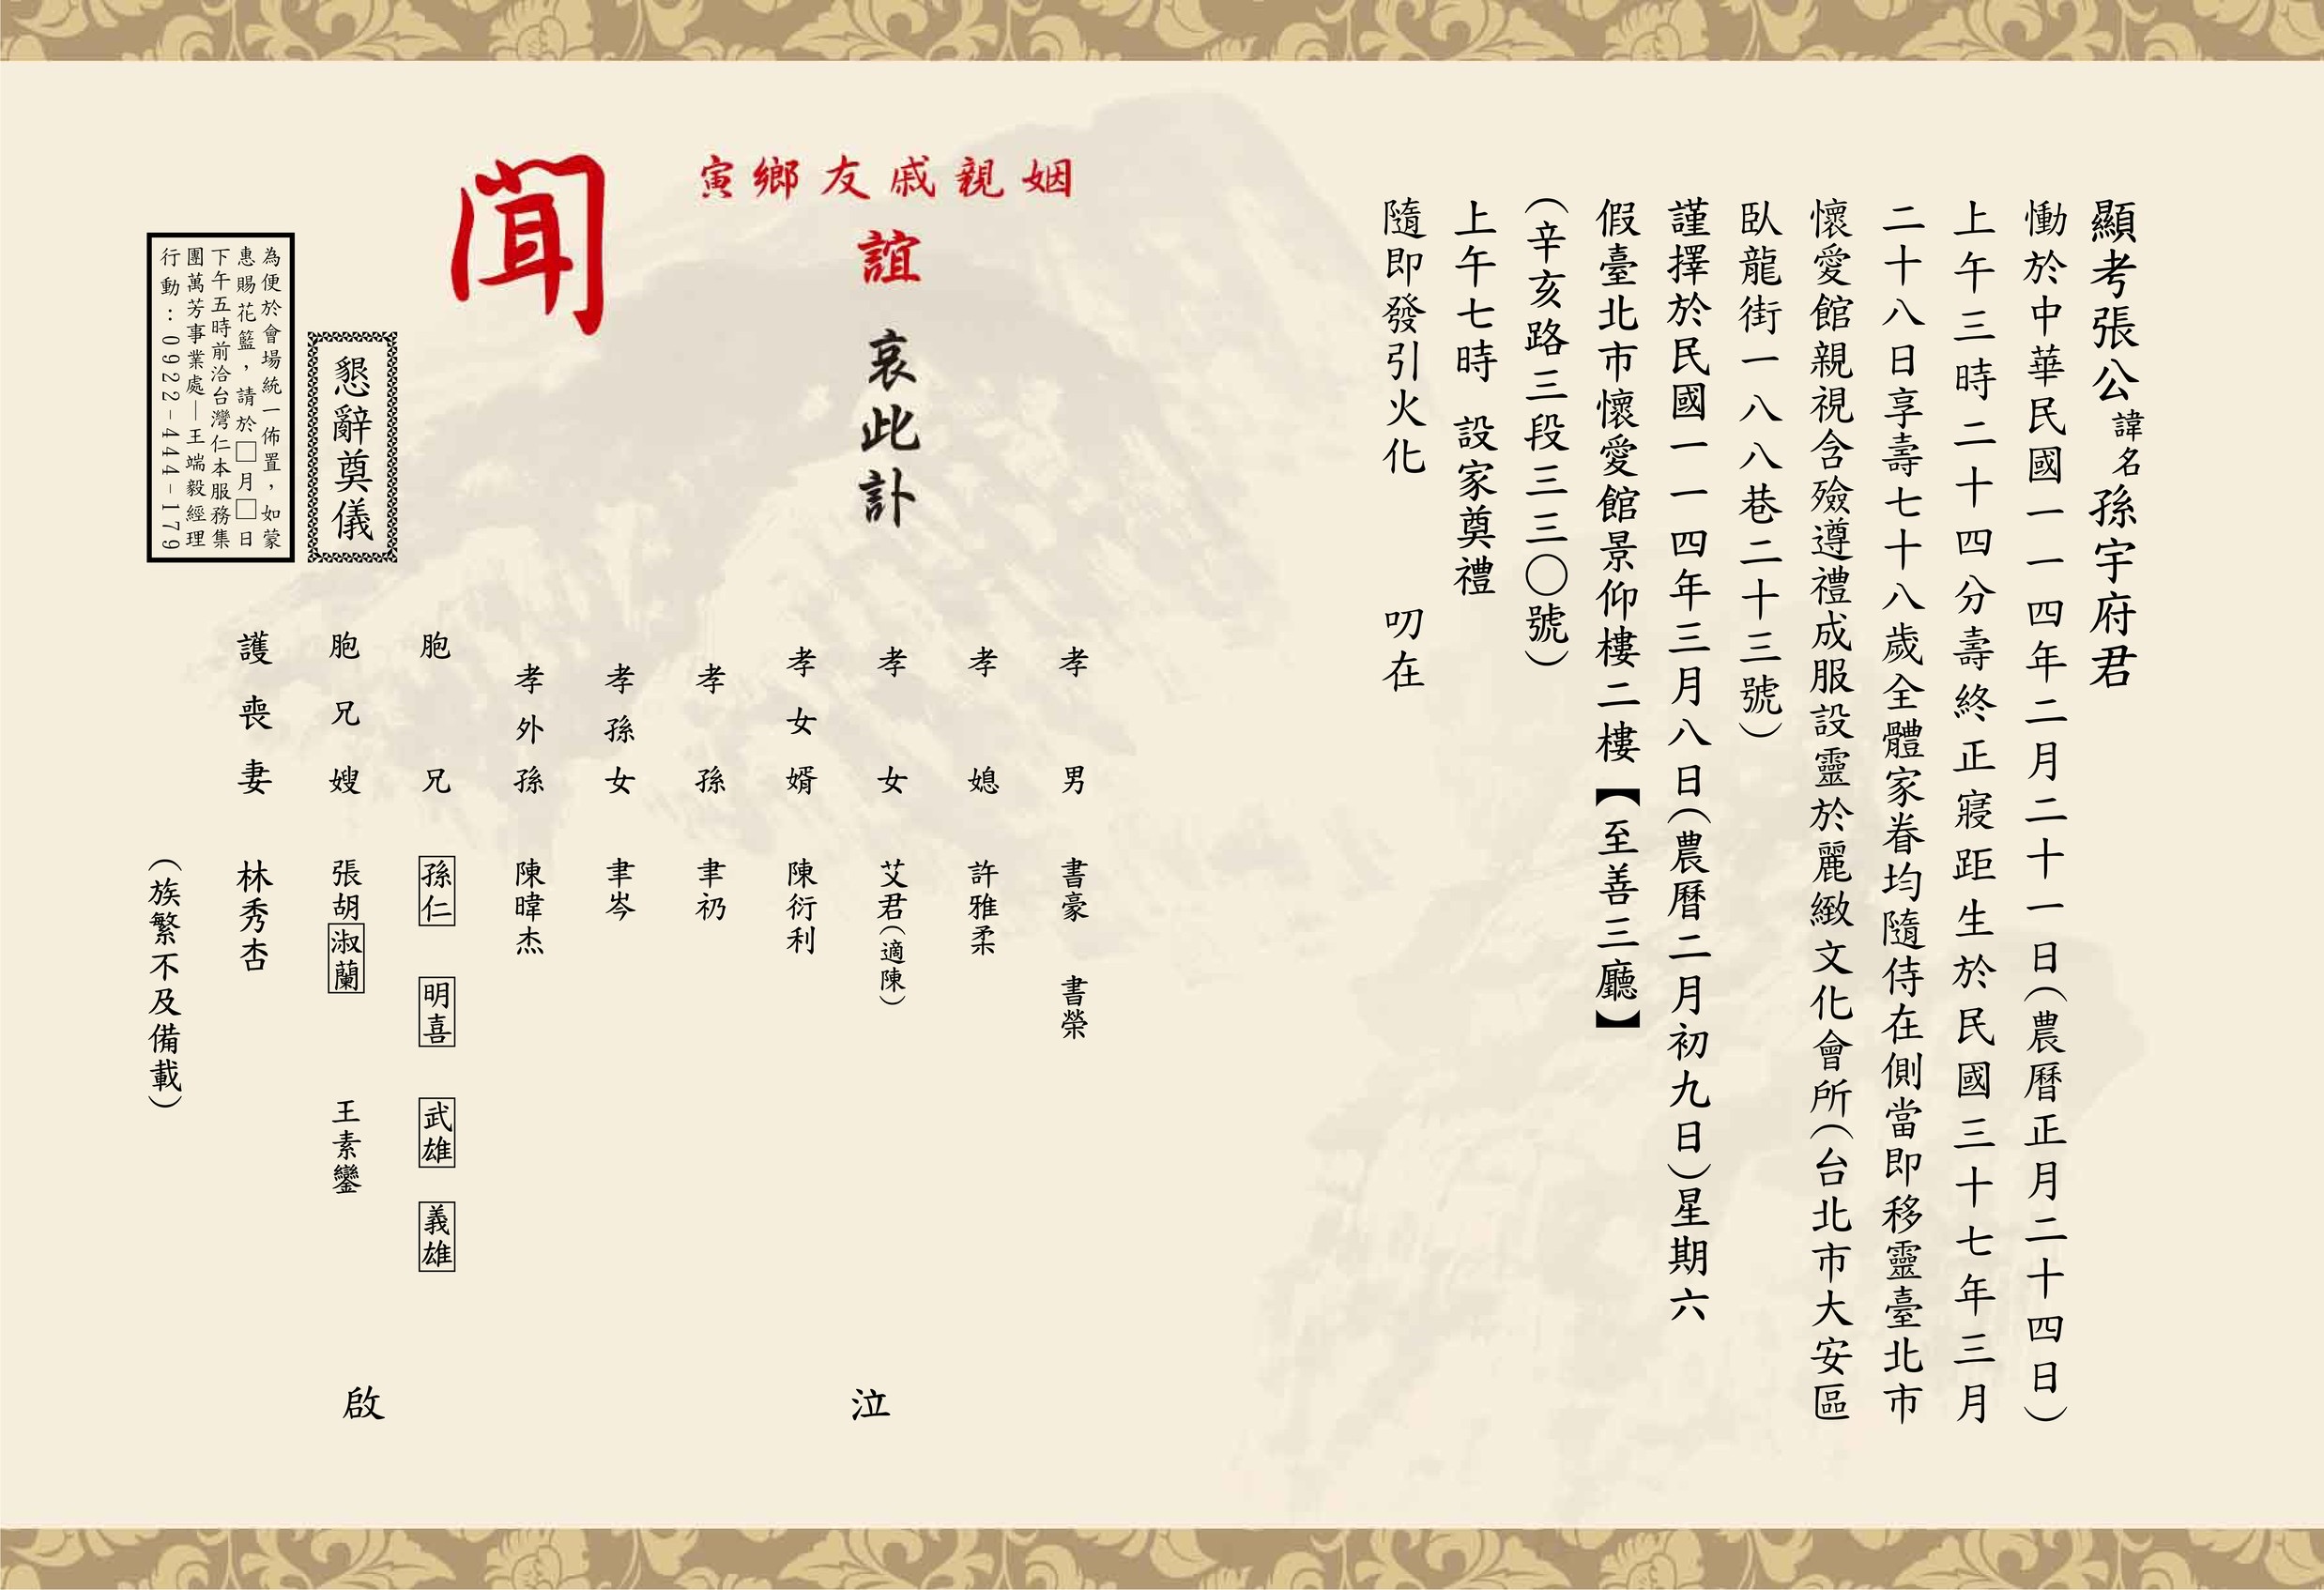 顯考張公諱名孫宇府君
慟於中華民國一一四年二月二十一日(農曆正月二十四日)
上午三時二十四分壽終正寢距生於民國三十七年三月
二十八日享壽七十八歲全體家眷均隨侍在側當即移靈臺北市
懷愛館親視含殮遵禮成服設靈於麗緻文化會所(台北市大安區
臥龍街一八八巷二十三號)
謹擇於民國一一四年三月八日(農曆二月初九日)星期六
假臺北市懷愛館景仰樓二樓【至善三廳】
(辛亥路三段三三〇號)
上午七時 設家奠禮
隨即發引火化 叨在
姻親戚友鄉寅
誼
哀此訃
聞
孝男 書豪 書榮
孝媳 許雅柔
孝女 艾君(適陳)
孝女婿 陳衍利
孝孫 聿礽
孝孫女 聿岑
孝外孫 陳暐杰
胞兄 孫仁 明喜 武雄 義雄
胞兄嫂 張胡淑蘭 王素鑾
護喪妻 林秀杏
(族繁不及備載)
泣
啟
懇辭奠儀
為便於會場統一佈置，如蒙
惠賜花籃，請於□月□日
下午五時前洽台灣仁本服務集
團萬芳事業處—王端毅經理
行動：0922-444-179